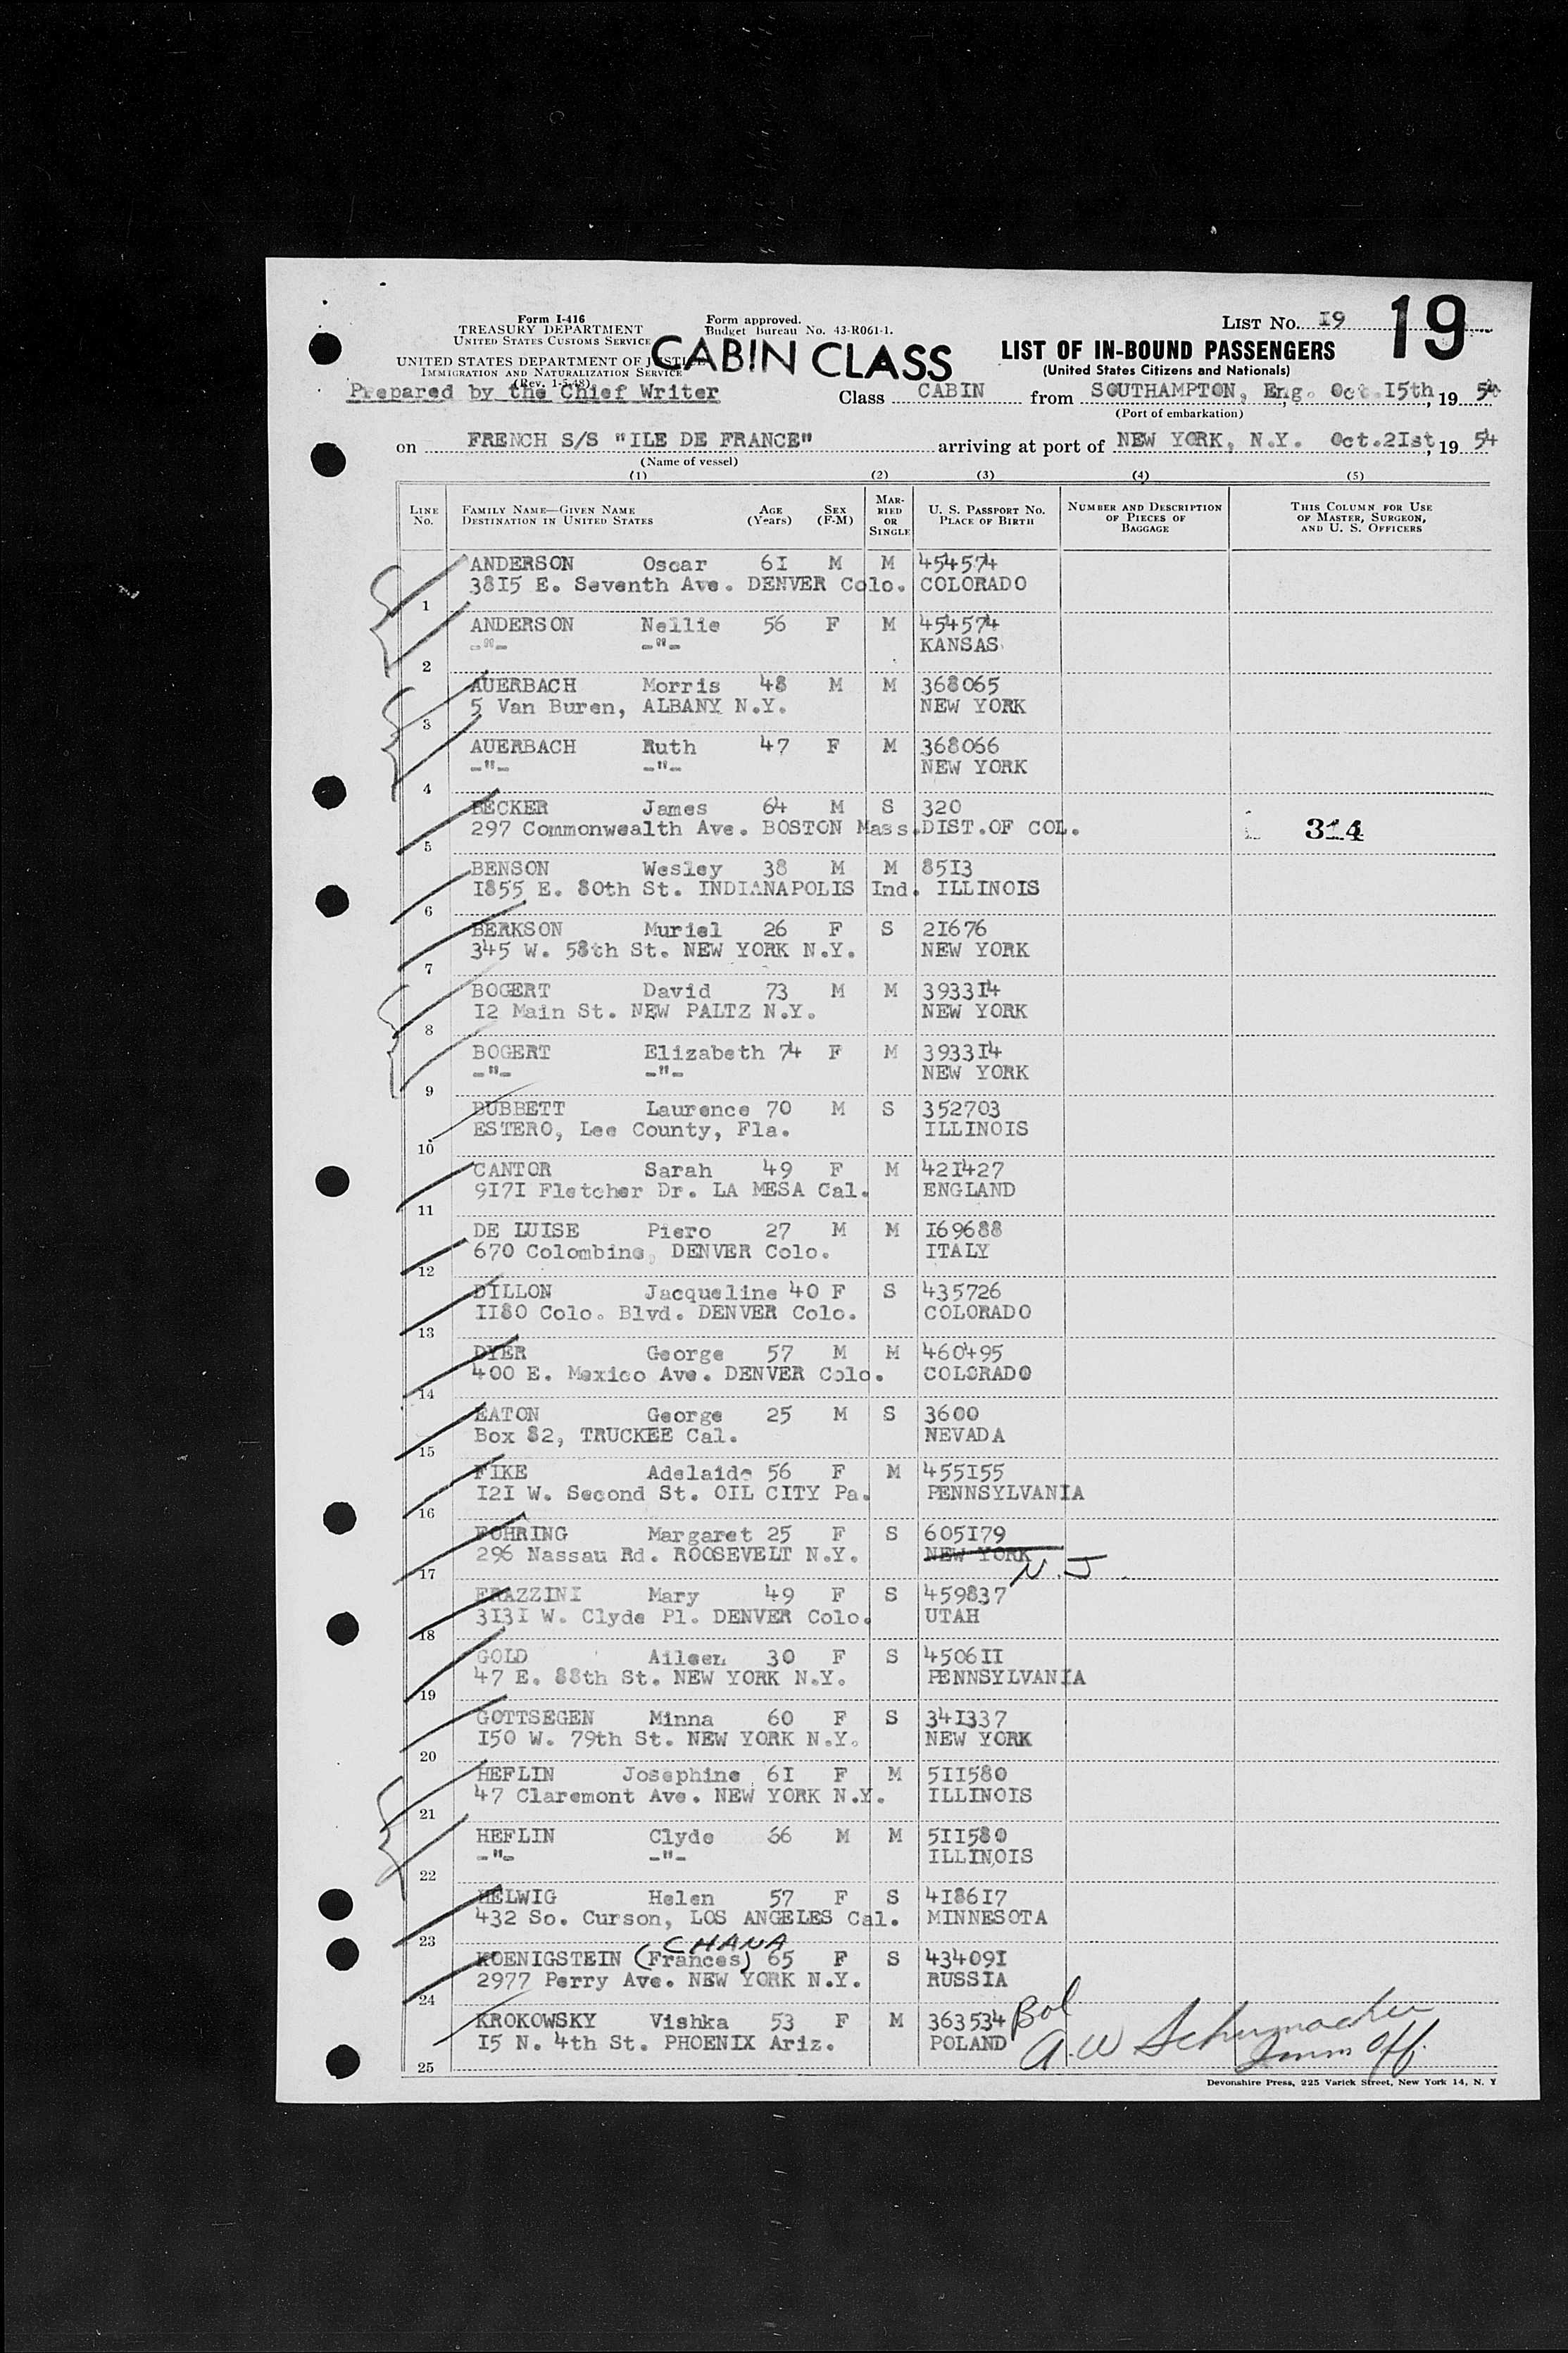 Form I-416
TREASURY DEPARTMENT
UNITED STATES CUSTOMS SERVICE
UNITED STATES DEPARTMENT OF JUSTICE
IMMIGRATION AND NATURALIZATION SERVICE
(Rev. 1-5-48)
Prepared by the Chief Writer
Form approved.
Budget Bureau No. 43-R061-1.
CABIN CLASS
LIST NO. I9
19
LIST OF IN-BOUND PASSENGERS
(United States Citizens and Nationals)
Class CABIN from SOUTHAMPTON, Eng. Oct.I5th, 19 54
(Port of embarkation)
on FRENCH S/S "ILE DE FRANCE" arriving at port of NEW YORK, N.Y. Oct.2Ist, 19 54
(Name of vessel)
(1) (2) (3) (4) (5)
LINE NO. FAMILY NAME—GIVEN NAME DESTINATION IN UNITED STATES AGE (Years) SEX (F-M) MARRIED OR SINGLE U. S. PASSPORT NO. PLACE OF BIRTH NUMBER AND DESCRIPTION OF PIECES OF BAGGAGE THIS COLUMN FOR USE OF MASTER, SURGEON, AND U. S. OFFICERS
ANDERSON Oscar 6I M M 454574
1 38I5 E. Seventh Ave. DENVER Colo. COLORADO
ANDERSON Nellie 56 F M 454574
2 -"- -"- KANSAS
AUERBACH Morris 48 M M 368065
3 5 Van Buren, ALBANY N.Y. NEW YORK
AUERBACH Ruth 47 F M 368066
4 -"- -"- NEW YORK
BECKER James 64 M S 320
5 297 Commonwealth Ave. BOSTON Mass. DIST.OF COL. 314
BENSON Wesley 38 M M 85I3
6 I855 E. 80th St. INDIANAPOLIS Ind. ILLINOIS
BERKSON Muriel 26 F S 2I676
7 345 W. 58th St. NEW YORK N.Y. NEW YORK
BOGERT David 73 M M 3933I4
8 I2 Main St. NEW PALTZ N.Y. NEW YORK
BOGERT Elizabeth 74 F M 3933I4
9 -"- -"- NEW YORK
BUBBETT Laurence 70 M S 352703
10 ESTERO, Lee County, Fla. ILLINOIS
CANTOR Sarah 49 F M 42I427
11 9I7I Fletcher Dr. LA MESA Cal. ENGLAND
DE LUISE Piero 27 M M I69688
12 670 Colombine, DENVER Colo. ITALY
DILLON Jacqueline 40 F S 435726
13 II80 Colo. Blvd. DENVER Colo. COLORADO
DYER George 57 M M 460495
14 400 E. Mexico Ave. DENVER Colo. COLORADO
EATON George 25 M S 3600
15 Box 82, TRUCKEE Cal. NEVADA
FIKE Adelaide 56 F M 455I55
16 I2I W. Second St. OIL CITY Pa. PENNSYLVANIA
FOHRING Margaret 25 F S 605I79
17 296 Nassau Rd. ROOSEVELT N.Y. NEW YORK N.J.
FRAZZINI Mary 49 F S 459837
18 3I3I W. Clyde Pl. DENVER Colo. UTAH
GOLD Aileen 30 F S 4506II
19 47 E. 88th St. NEW YORK N.Y. PENNSYLVANIA
GOTTSEGEN Minna 60 F S 34I337
20 I50 W. 79th St. NEW YORK N.Y. NEW YORK
HEFLIN Josephine 6I F M 5II580
21 47 Claremont Ave. NEW YORK N.Y. ILLINOIS
HEFLIN Clyde 66 M M 5II580
22 -"- -"- ILLINOIS
HELWIG Helen 57 F S 4I86I7
23 432 So. Curson, LOS ANGELES Cal. MINNESOTA
CHANA
KOENIGSTEIN (Frances) 65 F S 43409I
24 2977 Perry Ave. NEW YORK N.Y. RUSSIA
KROKOWSKY Vishka 53 F M 363534 Bol
25 I5 N. 4th St. PHOENIX Ariz. POLAND A. W Schumacher
Imm Off.
Devonshire Press, 225 Varick Street, New York 14, N. Y